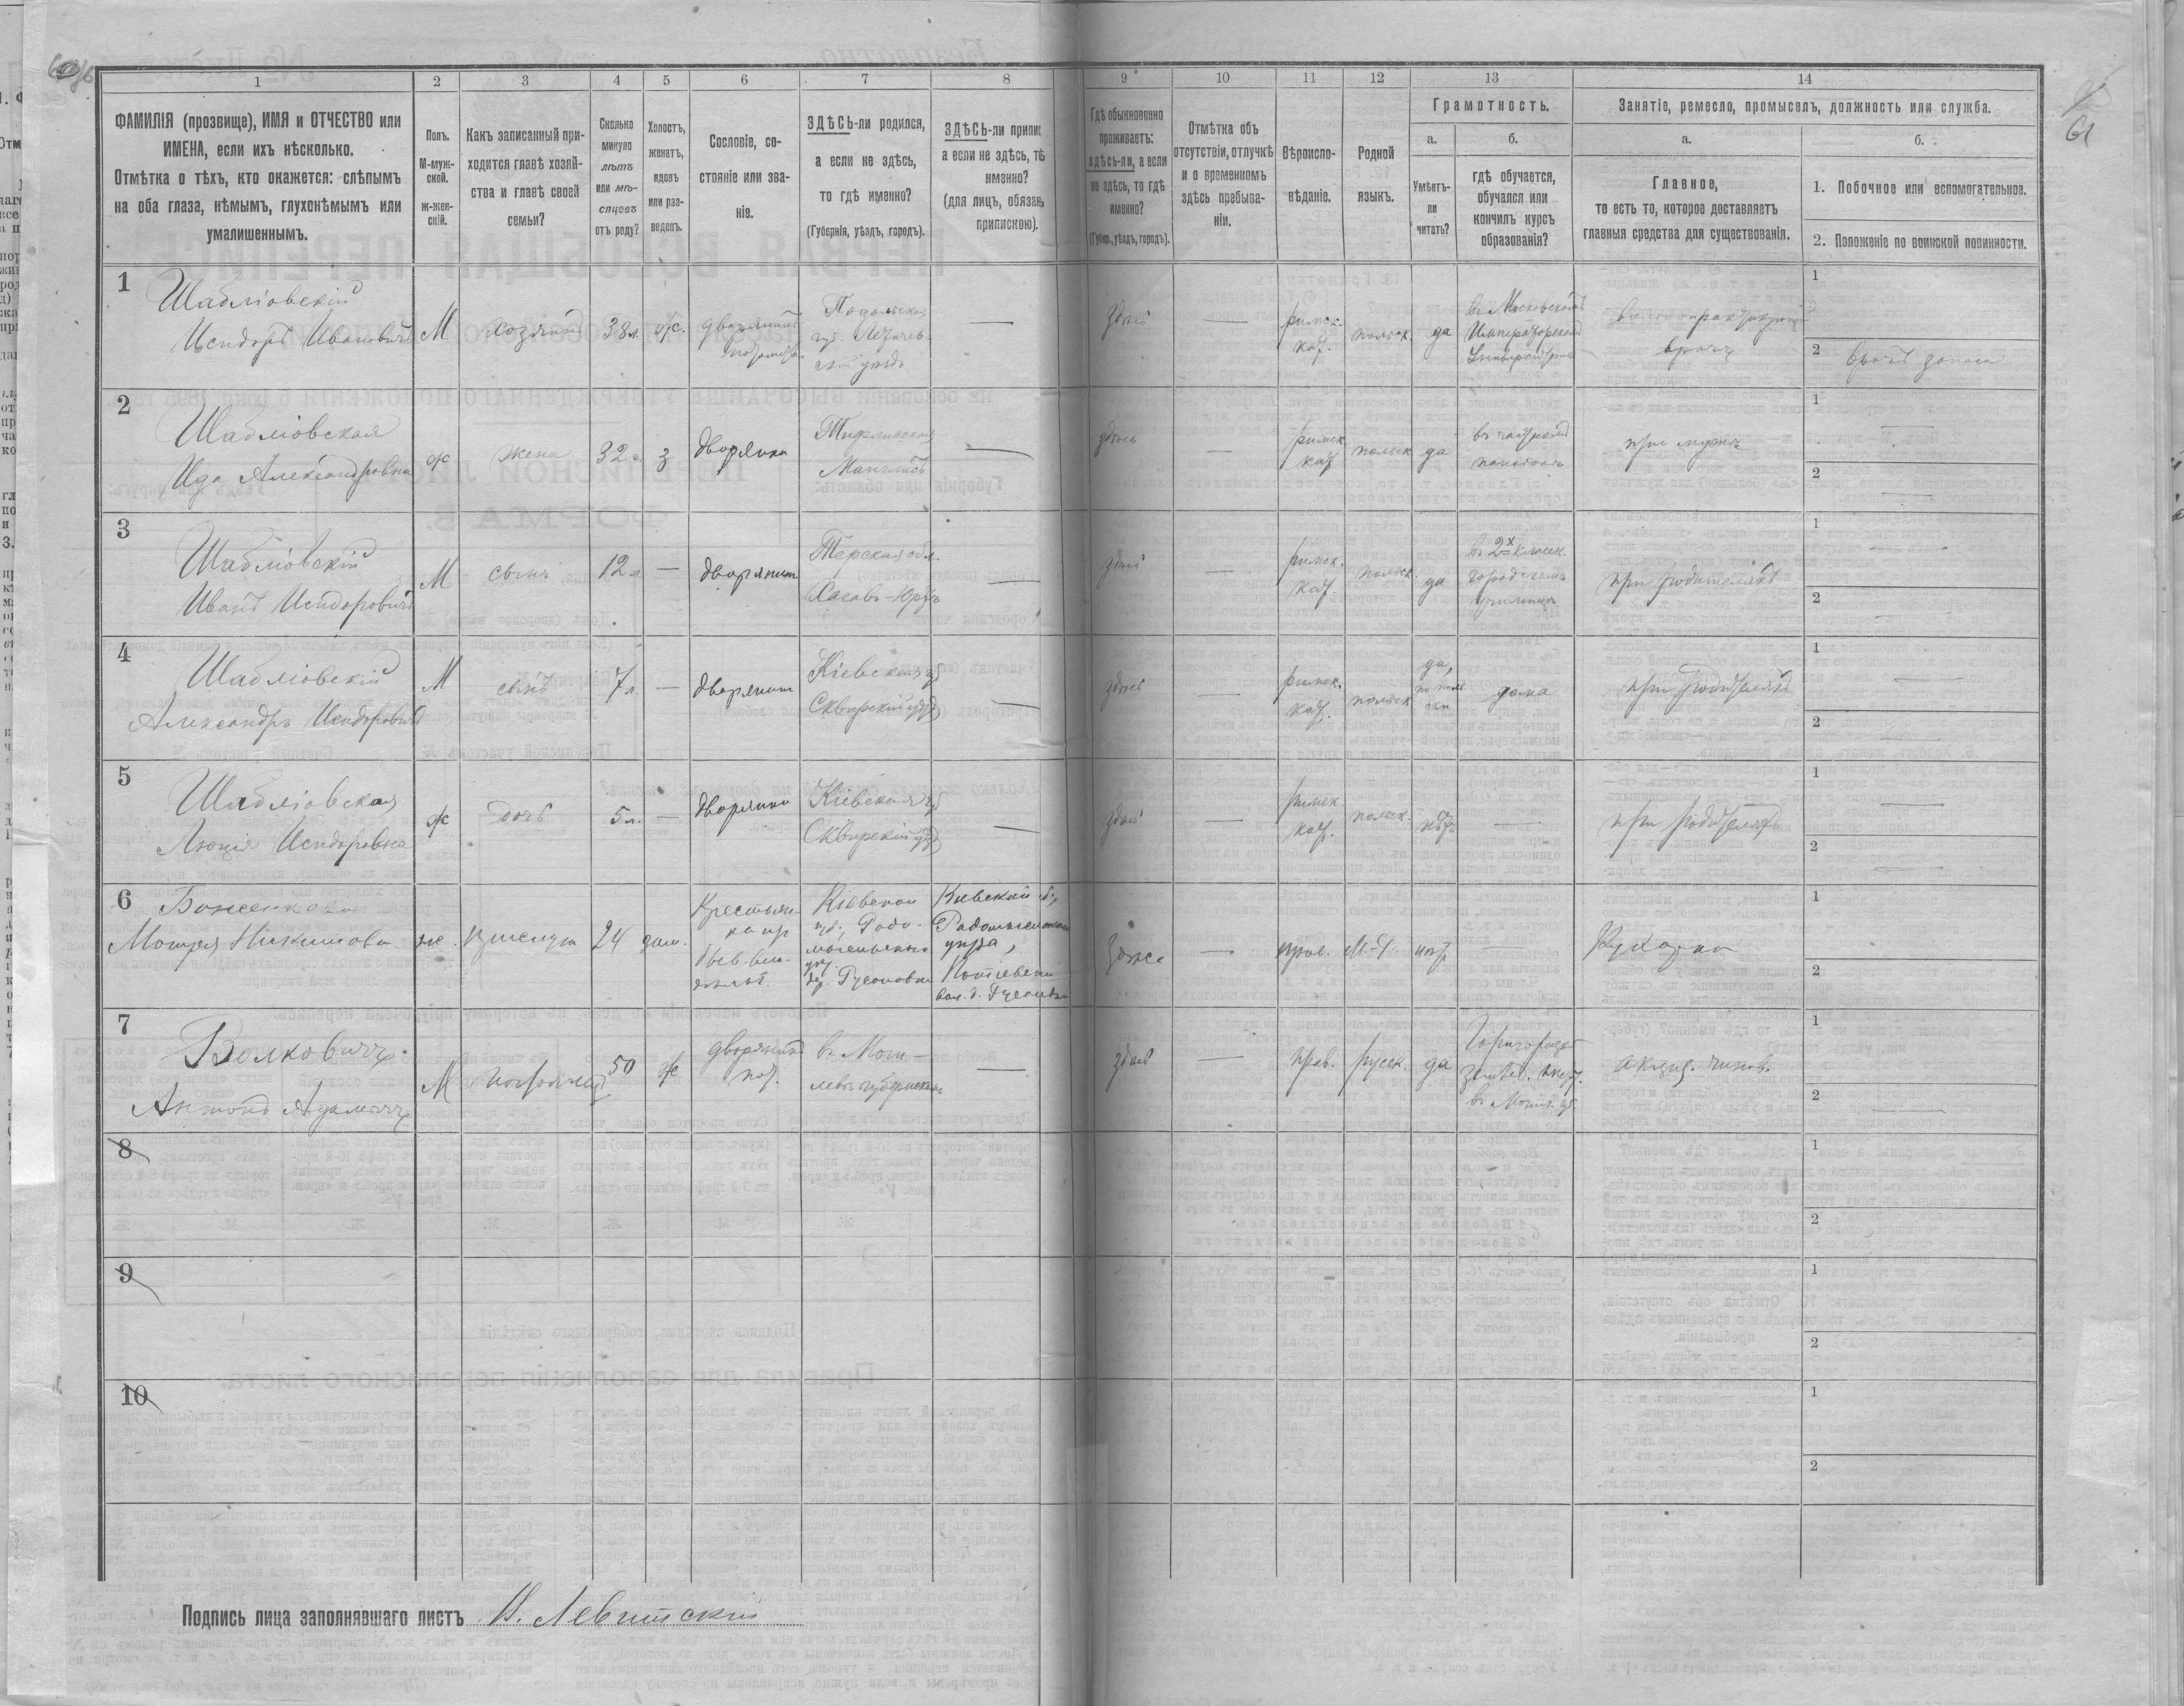 1 2 3 4 5 6 7 8 9 10 11 12 13 14
ФАМИЛІЯ (прозвище), ИМЯ и ОТЧЕСТВО или
ИМЕНА, если ихъ нѣсколько.
Отмѣтка о тѣхъ, кто окажется: слѣпымъ
на оба глаза, нѣмымъ, глухонѣмымъ или
умалишеннымъ.
Полъ.
М-муж-
ской.
ж-жен-
скій.
Какъ записанный при-
ходится главѣ хозяй-
ства и главѣ своей
семьи?
Сколько
минуло
лѣтъ
или мѣ-
сяцевъ
отъ роду?
Холостъ,
женатъ,
вдовъ
или раз-
веденъ.
Сословіе, со-
стояніе или зва-
ніе.
ЗДѢСЬ-ли родился,
а если не здѣсь,
то гдѣ именно?
(Губернія, уѣздъ, городъ).
ЗДѢСЬ-ли припис
а если не здѣсь, то
именно?
(для лицъ, обязан
припискою).
Гдѣ обыкновенно
проживаетъ:
здѣсь-ли, а если
не здѣсь, то гдѣ
именно?
(Губер., уѣздъ, городъ).
Отмѣтка объ
отсутствіи, отлучкѣ
и о временномъ
здѣсь пребыва-
ніи.
Вѣроиспо-
вѣданіе.
Родной
языкъ.
Грамотность.
а.
Умѣетъ-
ли
читать?
б.
гдѣ обучается,
обучался или
кончилъ курсъ
образованія?
Занятіе, ремесло, промыселъ, должность или служба.
а.
Главное,
то есть то, которое доставляетъ
главныя средства для существованія.
б.
1. Побочное или вспомогательное.
2. Положеніе по воинской повинности.
61
1
Шабліовскій
Исидоръ Ивановичъ
М
хозяинъ
38 л.
ж.
дворянинъ
потомств.
Подольская
губ. Летичев-
скій уѣздъ
—
здѣсь
—
римск.
кат.
польск.
да
въ Московскомъ
Императорском
Университетѣ
вольнопрактикующій
врачъ
1
2 врачъ запаса
2
Шабліовская
Ида Александровна
ж
жена
32 л.
з
дворянка
Тифлисская
Манглисъ
—
здѣсь
—
римск
кат
польск
да
въ частномъ
пансіонѣ
при мужѣ
1 —
2 —
3
Шабліовскій
Иванъ Исидоровичъ
М
сынъ
12 л
—
дворянин
Терская обл.
Хасавъ-Юртъ
—
здѣсь
—
римск.
кат
польск.
да
въ 2х класн.
городскомъ
училищѣ
при родителяхъ
1 —
2 —
4
Шабліовскій
Александръ Исидоровичъ
М
сынъ
7 л.
—
дворянин
Кіевская губ
Сквирскій уѣзд
—
здѣсь
—
римск.
кат.
польск
да,
по поль
ски
дома
при родителяхъ
1 —
2 —
5
Шабліовская
Люція Исидоровна
ж
дочь
5 л.
—
дворянка
Кіевская губ
Сквирскій уѣзд
—
здѣсь
—
римск
кат.
польск.
нѣтъ
—
при родителях
1 —
2 —
6
Боженкова
Мотря Никитова
же.
прислуга
24
зам.
Крестьян-
ка изъ
быв. вла-
дѣльч.
Кіевской
губ. Радо-
мысльского
уѣз.
дер. Гусоновки
Кіевской губ,
Радомысльского
уѣзда,
вол. д.
Здѣсь
—
прав.
М-Р.
нѣт
—
Кухарка
1
2
7
Волковичъ
Антонъ Адамичъ
М
50
ж
дворянинъ
пот.
въ Моги-
левѣ губернском
—
здѣсь
—
прав.
русск.
да
Горигорецк
землед. инст.
въ Могил. губ.
акциз. чинов.
1
2 —
8
1
2
9
1
2
10
1
2
Подпись лица заполнявшаго листъ Левитскій